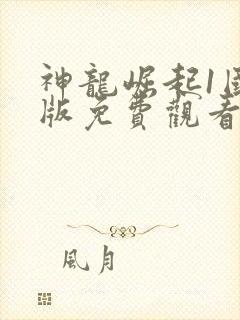 神龍崛起1
版免費觀看
風月